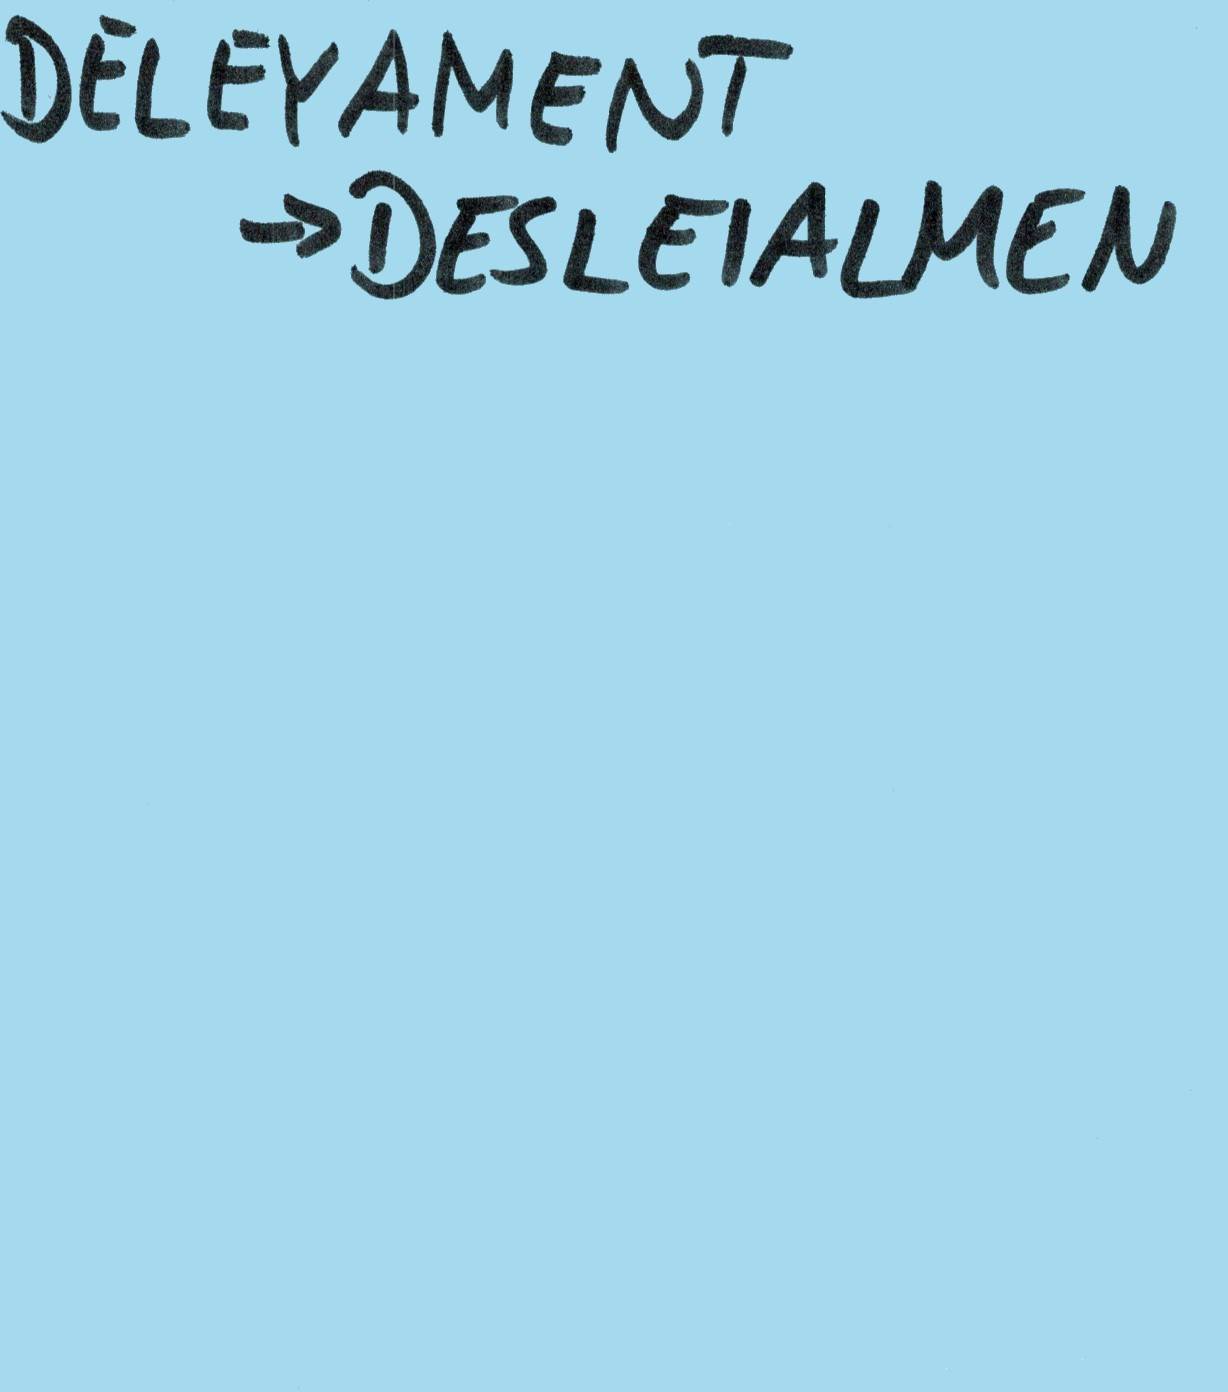 DÉLÉYAMENT
→DESLEIALMEN